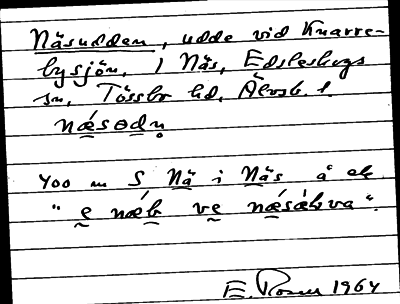 Näsudden, udde vid Knarre-
bysjön, i Näs, Edsleskogs
sn, Tössbo hd, Älvsb. l.
næsɵdn̥
400 m S Nä i Näs å ek
"e næb ve næsækva".
E. 1964